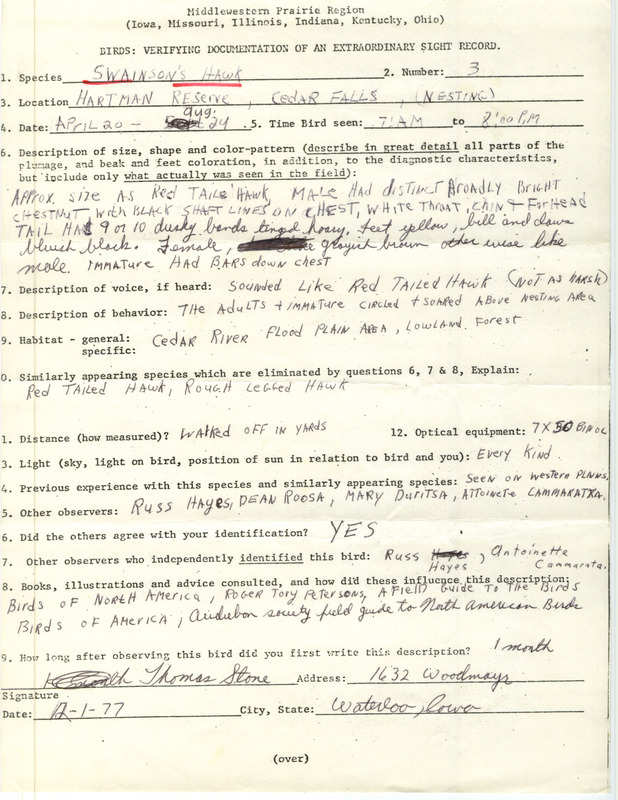 Middlewestern Prairie Region
(Iowa, Missouri, Illinois, Indiana, Kentucky, Ohio)
BIRDS: VERIFYING DOCUMENTATION OF AN EXTRAORDINARY SIGHT RECORD.
1. Species SWAINSON'S HAWK 2. Number: 3
3. Location HARTMAN RESERVE, CEDAR FALLS, (NESTING)
aug.
4. Date: APRIL 20 - 24 .5. Time Bird seen: 7:AM to 8:00 P.M
6. Description of size, shape and color-pattern (describe in great detail all parts of the
plumage, and beak and feet coloration, in addition, to the diagnostic characteristics,
but include only what actually was seen in the field):
Approx. size as Red Taile Hawk, Male Had distinct Broadly Bright
chestnut with BLACK SHAFT LINES ON CHEST, WHITE THROAT, CHIN + FORHEAD
TAIL HAS 9 or 10 dusky bands tinged hoary. Feet yellow, bill and claws
bluish black. Female, grayish brown other wise like
male. IMMATURE HAD BARS down chest
7. Description of voice, if heard: Sounded Like Red Tailed Hawk (NOT AS HARSH)
8. Description of behavior: THE AdULTS + IMMATURE CIRCLED + SOARED ABOVE NESTING AREA
9. Habitat - general: CEDAR RIVER FLOOD PLAIN AREA, LOWLAND FOREST
specific:
0. Similarly appearing species which are eliminated by questions 6, 7 & 8, Explain:
Red TAILED HAWK, ROUGH LEGGED HAWK
1. Distance (how measured)? WALKED OFF IN YARDS 12. Optical equipment: 7X50 BINOC
3. Light (sky, light on bird, position of sun in relation to bird and you): EVERY KIND.
4. Previous experience with this species and similarly appearing species: SEEN ON WESTERN PLAINS.
5. Other observers: RUSS HAYES, DEAN ROOSA, MARY DURITSA, ATTOINETE CAMMARATTA.
6. Did the others agree with your identification? YES
7. Other observers who independently identified this bird: Russ Hayes, Antoinette
Cammarata.
8. Books, illustrations and advice consulted, and how did these influence this description:
Birds of NORTH AMERICA, ROGER TORY PETERSONS, A FIELD GUIDE TO THE BIRDS
BIRDS OF AMERICA, Audubon society field guide to North American Birds
9. How long after observing this bird did you first write this description? 1 month
Thomas Stone Address: 1632 Woodmayr
Signature
Date: 12-1-77 City, State: Waterloo, Iowa
(over)